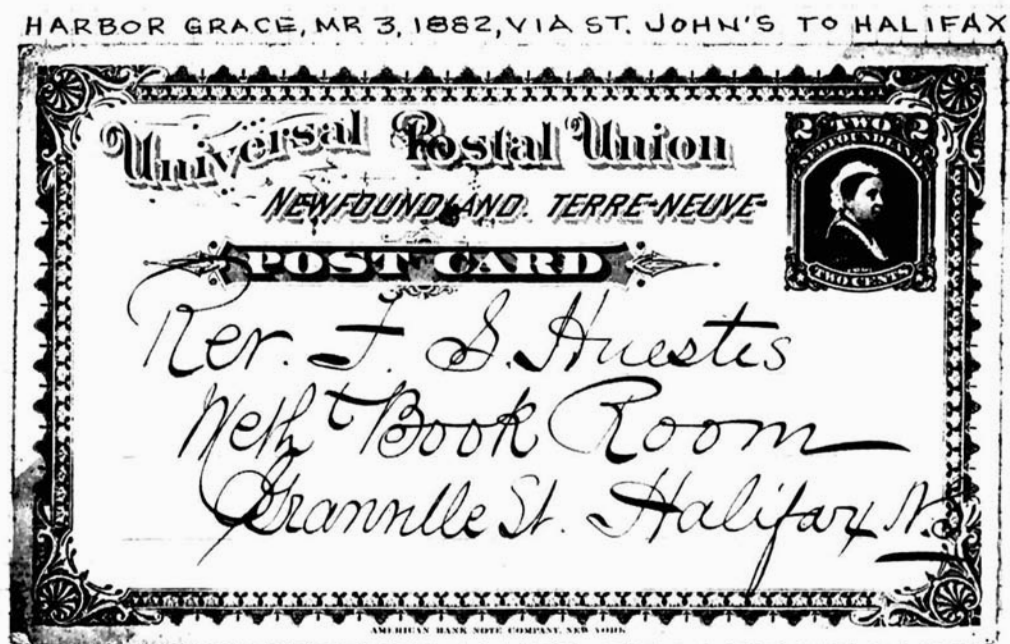 HARBOR GRACE, MR 3, 1882, VIA ST. JOHN'S TO HALIFAX
Universal Postal Union
NEWFOUNDLAND. TERRE-NEUVE
POST CARD
2 TWO 2
NEWFOUNDLAND
TWO CENTS
Rev. S. Huestis
Meth t Book Room
Granville St. Halifax N.
AMERICAN BANK NOTE COMPANY, NEW YORK.